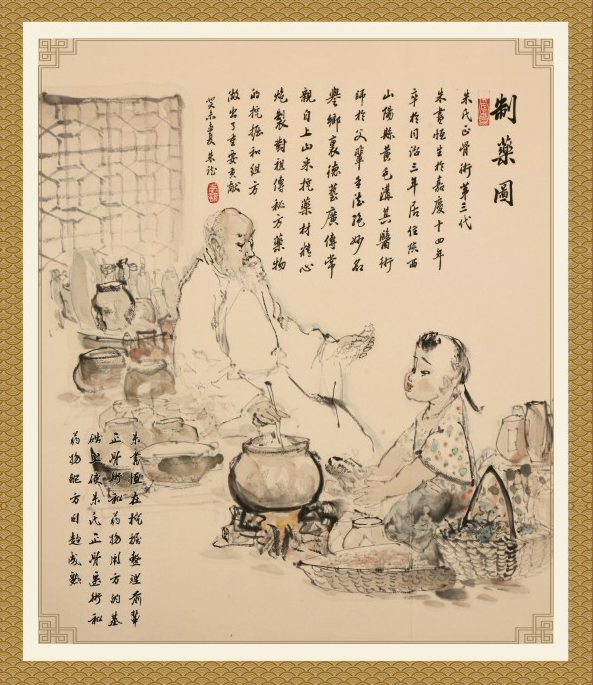 制藥圖
朱氏正骨術第三代
朱書恒生於嘉慶十四年
卒於同治三年居住陝西
山陽縣黃毛溝其醫術
師於父輩手法絕妙名
譽鄉裏德藝廣傳常
親自上山采挖藥材精心
炮製對祖傳秘方藥物
的挖掘和組方
做出了重要貢獻
癸未孟夏
朱書恒在挖掘整理前輩
正骨術和药物用方的基
础上使朱氏正骨醫術和
药物配方日趋成熟